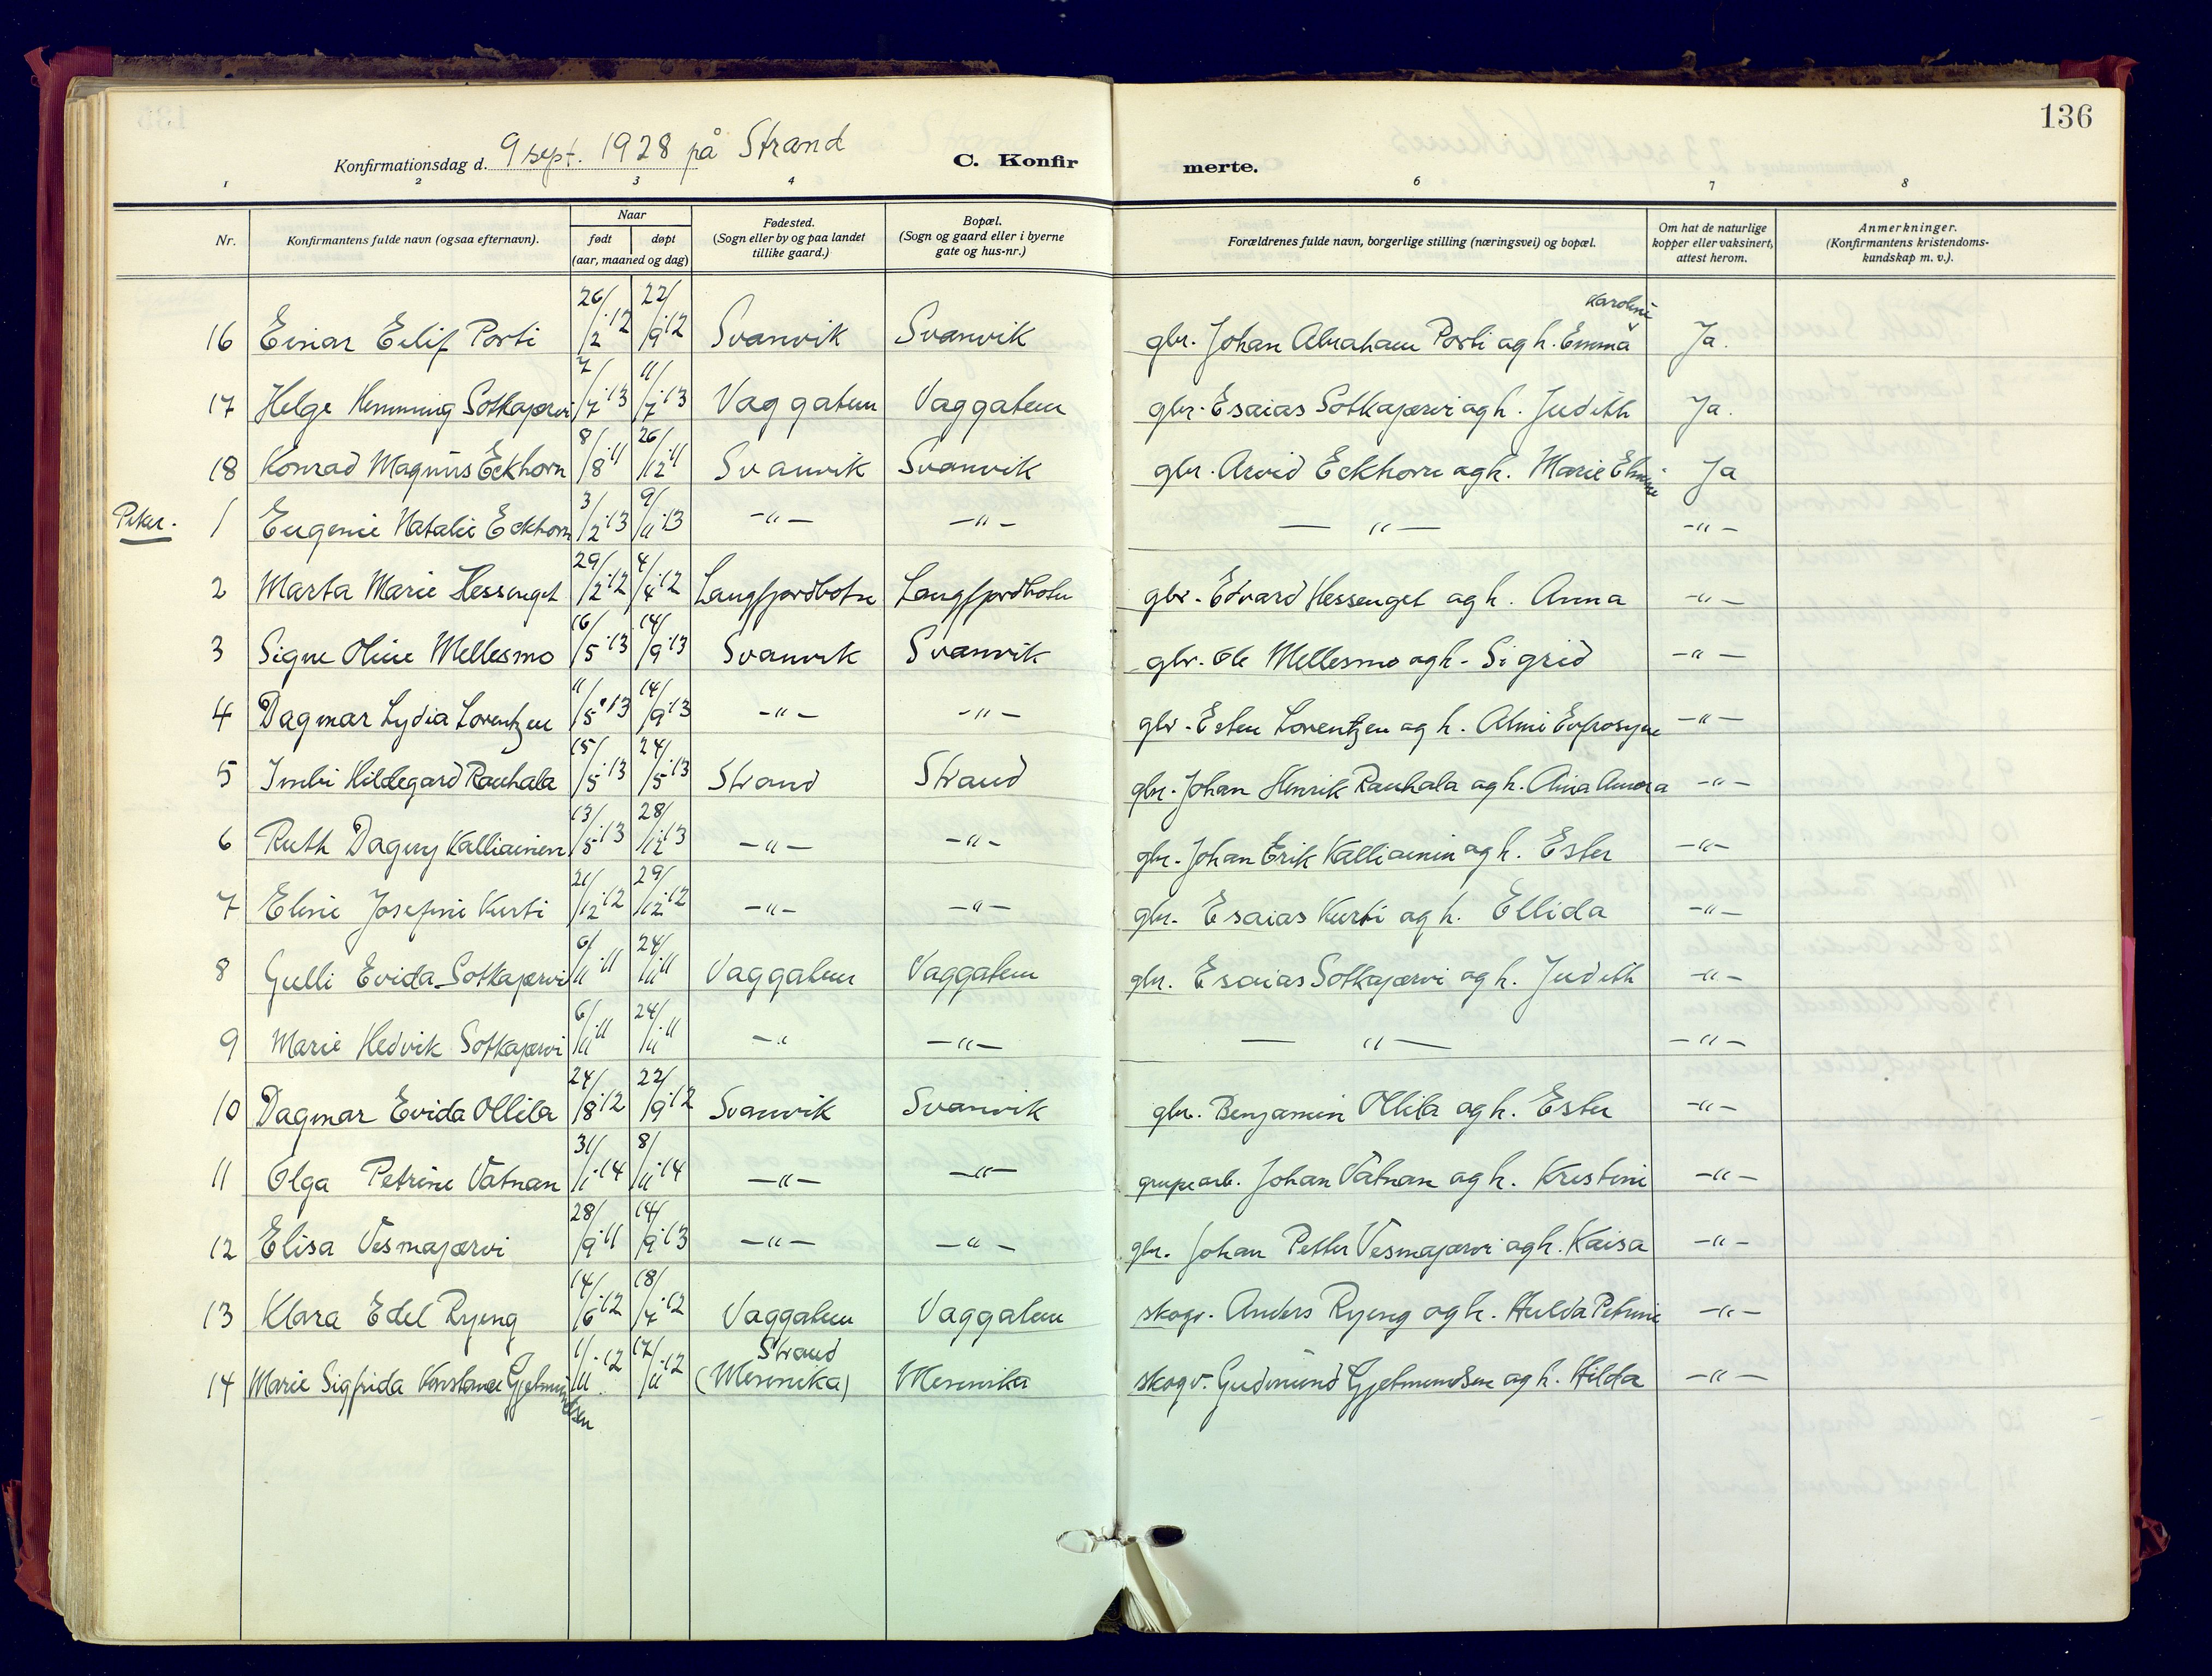 136
Konfirmationsdag d. 9 sept. 1928 på Strand C. Konfirmerte.
1 2 3 4 6 7 8
Nr. Konfirmantens fulde navn (ogsaa efternavn). Naar født døpt (aar, maaned og dag) Fødested. (Sogn eller by og paa landet tillike gaard.) Bopæl. (Sogn og gaard eller i byerne gate og hus-nr.) Forældrenes fulde navn, borgerlige stilling (næringsvei) og bopæl. Om hat de naturlige kopper eller vaksinert, attest herom. Anmerkninger. (Konfirmantens kristendoms-kundskap m. v.).
16 Einar Eilif Porti 26/2 12 22/9 12 Svanvik Svanvik gbr. Johan Abraham Porti og h. Emma Karoline Ja.
17 Helge Hemming Sotkajærvi 7/7 13 11/7 13 Vaggatem Vaggatem gbr. Esaias Sotkajærvi og h. Judith Ja.
18 Konrad Magnus Eckhorn 8/8 11 26/12 11 Svanvik Svanvik gbr. Arvid Eckhorn og h. Marie Elmine Ja
Piker. 1 Eugenie Natalie Eckhorn 3/2 13 9/11 13 -"- -"- -"- -"-
2 Marta Marie Hessenget 29/2 12 4/4 12 Langfjordbotn Langfjordbotn gbr. Edvard Hessenget og h. Anna -"-
3 Signe Oline Mellesmo 16/5 13 14/9 13 Svanvik Svanvik gbr. Ole Mellesmo og h. Sigrid -"-
4 Dagmar Lydia Lorentzen 11/5 13 14/9 13 -"- -"- gbr. Esten Lorentzen og h. Almi Eufrosyne -"-
5 Imbi Hildegard Rauhala 15/5 13 24/5 13 Strand Strand gbr. Johan Henrik Rauhala og h. Aina Amora -"-
6 Ruth Dagny Kalliainen 13/5 13 28/12 13 -"- -"- gbr. Johan Erik Kalliainen og h. Ester -"-
7 Eline Josefine Kurti 21/12 12 29/12 12 -"- -"- gbr. Esaias Kurti og h. Ellida -"-
8 Gulli Evida Sotkajærvi 6/11 11 24/11 11 Vaggatem Vaggatem gbr. Esaias Sotkajærvi og h. Judith -"-
9 Marie Hedvik Sotkajærvi 6/11 11 24/11 11 -" -"- -"- -"-
10 Dagmar Evida Ollila 24/8 12 22/9 12 Svanvik Svanvik gbr. Benjamin Ollila og h. Ester -"-
11 Olga Petrine Vatnan 31/1 14 8/11 14 -"- -"- grupearb. Johan Vatnan og h. Kristine -"-
12 Elisa Vesmajærvi 28/9 11 14/9 13 -"- -"- gbr. Johan Petter Vesmajærvi og h. Kaisa -"-
13 Klara Edel Ryeng 14/6 12 18/7 12 Vaggatem Vaggatem skogv. Anders Ryeng og h. Hulda Petrine -"-
14 Marie Sigfrida Konstanse Gjetmundsen 1/11 12 17/11 12 Strand (Mennika) Mennika skogv. Gudmund Gjetmundsen og h. Hilda -"-